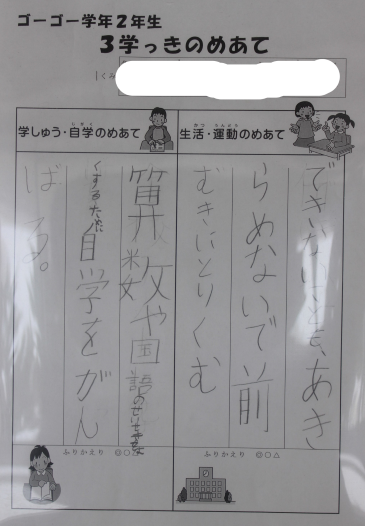 ゴーゴー学年2年生
3学っきのめあて
(くみ
生活・運動のめあて
せいかつ うんどう
できないことも、あき
らめないで前
むきにとりくむ
ふりかえり ◎○△
学しゅう・自学のめあて
じがく
算数や国語のせいせきをよ
くするために自学をがん
ばる。
ふりかえり ◎○△